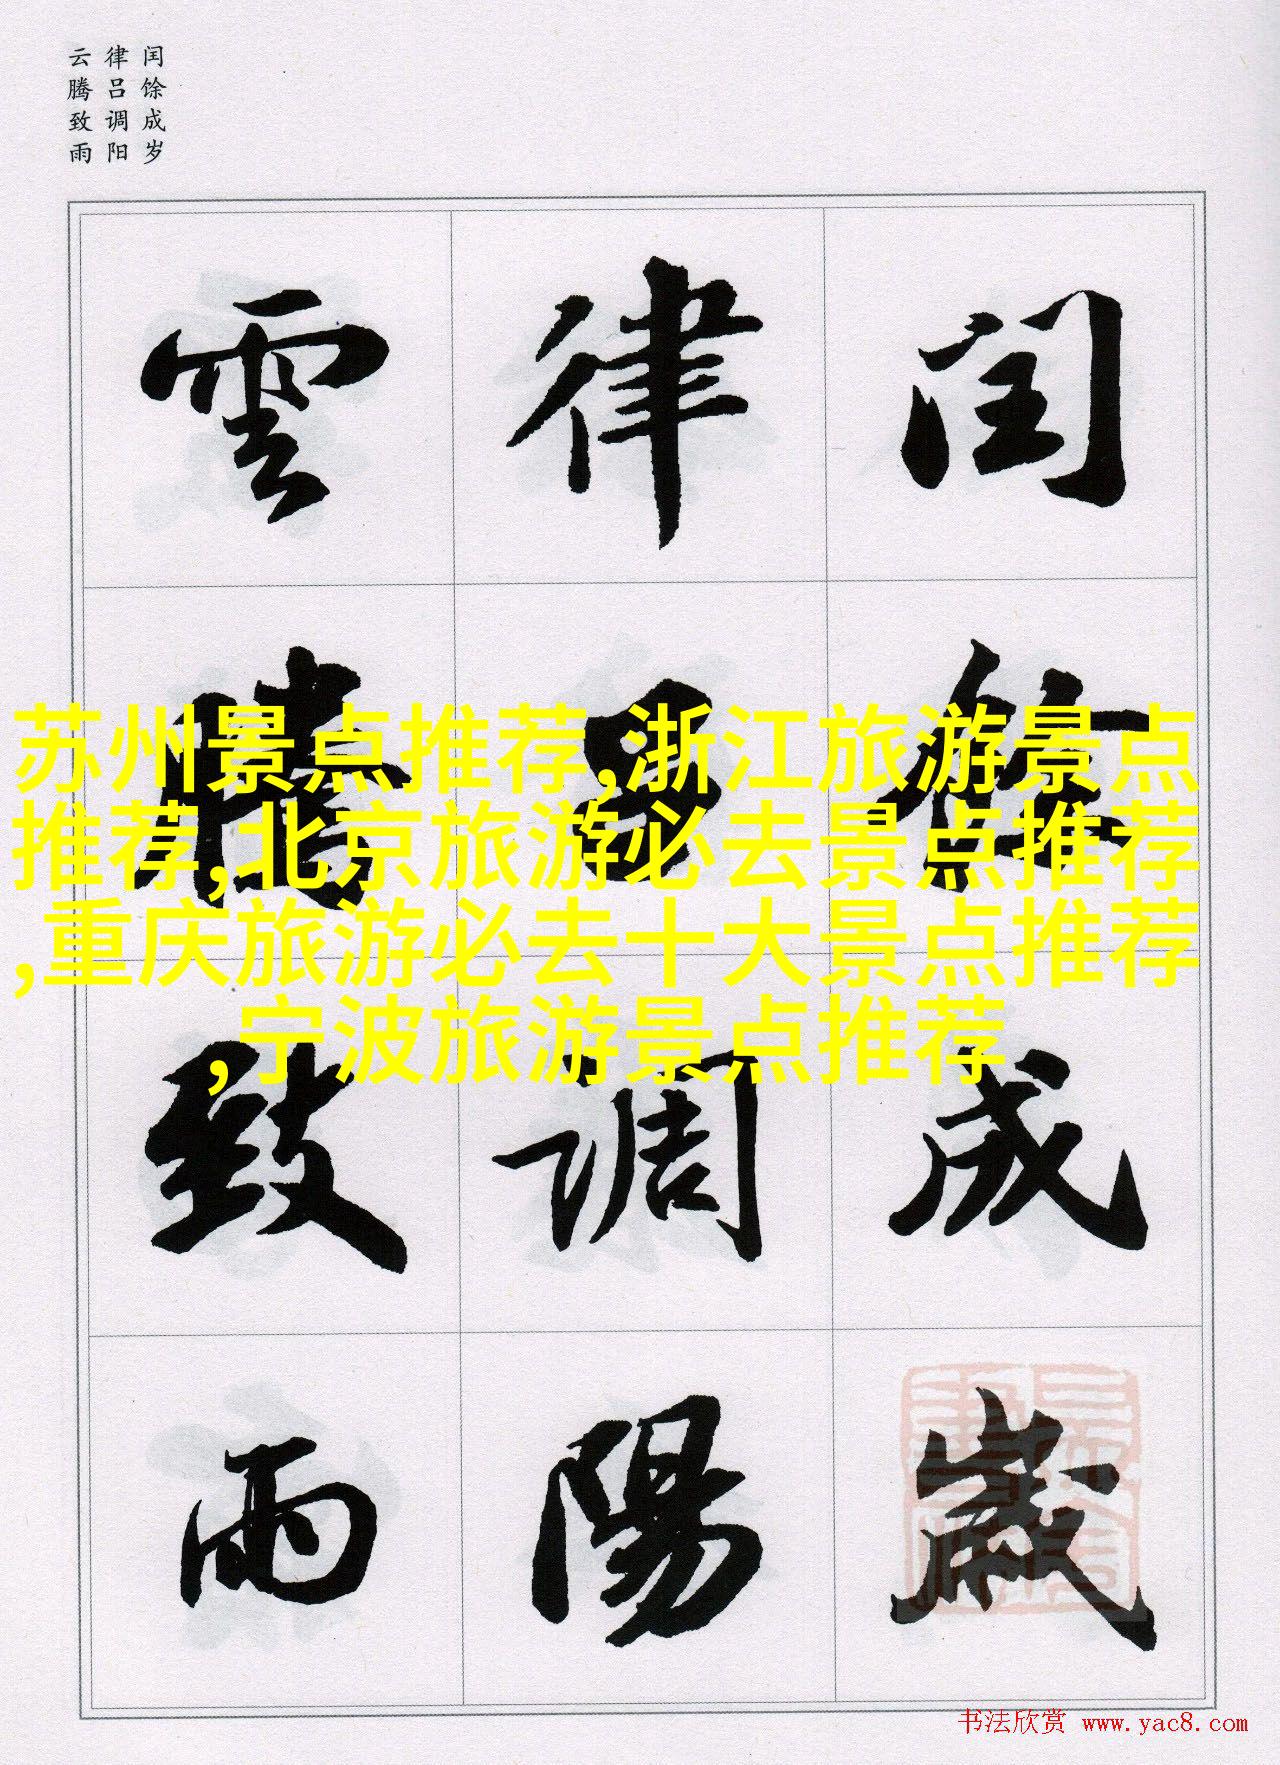 闰馀成岁
律吕调阳
云腾致雨
閏餘成歲
律吕調陽
雲騰致雨
苏州景点推荐,浙江旅游景点
推荐,北京旅游必去景点推荐
,重庆旅游必去十大景点推荐
,宁波旅游景点推荐
书法欣赏 www.yac8.com